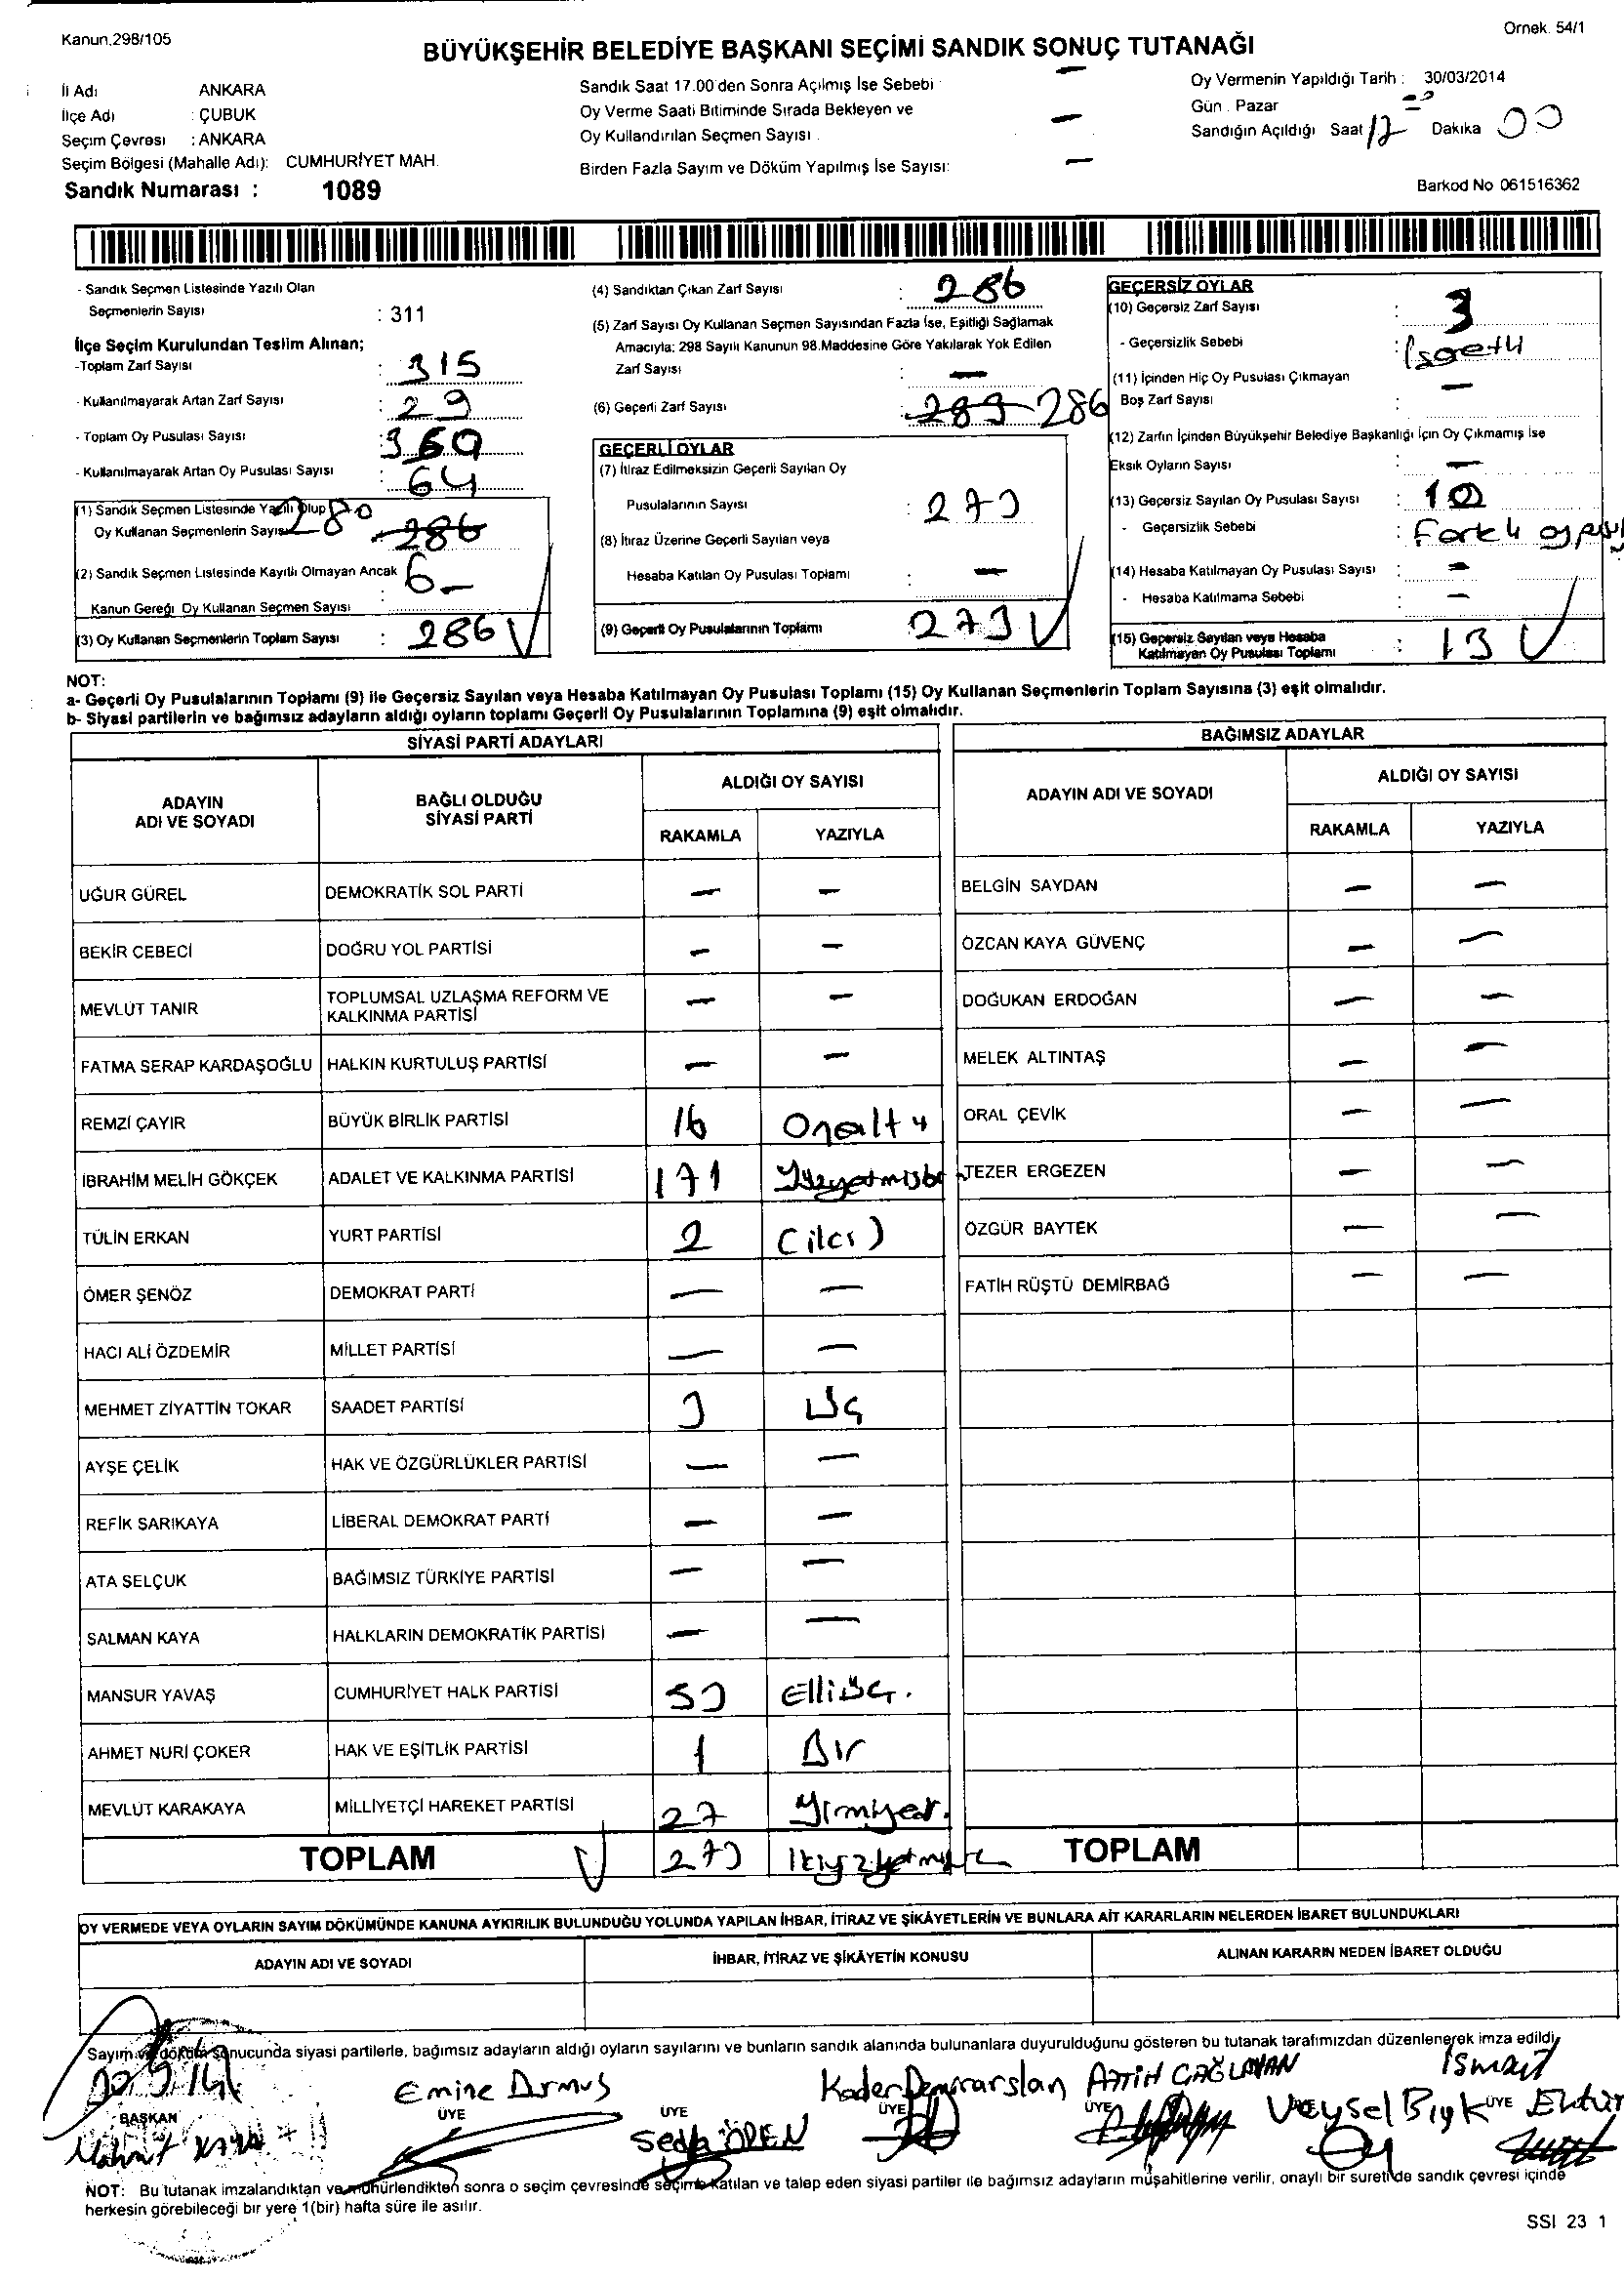 Kanun.298/105
Örnek. 54/1
BÜYÜKŞEHİR BELEDİYE BAŞKANI SEÇİMİ SANDIK SONUÇ TUTANAĞI
İl Adı ANKARA
İlçe Adı : ÇUBUK
Seçim Çevresi : ANKARA
Seçim Bölgesi (Mahalle Adı): CUMHURİYET MAH.
Sandık Numarası : 1089
Sandık Saat 17.00'den Sonra Açılmış İse Sebebi : —
Oy Verme Saati Bitiminde Sırada Bekleyen ve
Oy Kullandırılan Seçmen Sayısı : —
Birden Fazla Sayım ve Döküm Yapılmış İse Sayısı: —
Oy Vermenin Yapıldığı Tarih : 30/03/2014
Gün : Pazar
Sandığın Açıldığı Saat 17 Dakika 00
Barkod No 061516362
- Sandık Seçmen Listesinde Yazılı Olan
Seçmenlerin Sayısı : 311
İlçe Seçim Kurulundan Teslim Alınan;
-Toplam Zarf Sayısı : 315
- Kullanılmayarak Artan Zarf Sayısı : 29
- Toplam Oy Pusulası Sayısı : 360
- Kullanılmayarak Artan Oy Pusulası Sayısı : 64
(1) Sandık Seçmen Listesinde Yazılı Olup 280
Oy Kullanan Seçmenlerin Sayısı 286
(2) Sandık Seçmen Listesinde Kayıtlı Olmayan Ancak 6
Kanun Gereği Oy Kullanan Seçmen Sayısı :
(3) Oy Kullanan Seçmenlerin Toplam Sayısı : 286
(4) Sandıktan Çıkan Zarf Sayısı : 286
(5) Zarf Sayısı Oy Kullanan Seçmen Sayısından Fazla İse, Eşitliği Sağlamak
Amacıyla; 298 Sayılı Kanunun 98.Maddesine Göre Yakılarak Yok Edilen
Zarf Sayısı : —
(6) Geçerli Zarf Sayısı : 283 286
GEÇERLİ OYLAR
(7) İtiraz Edilmeksizin Geçerli Sayılan Oy
Pusulalarının Sayısı : 273
(8) İtiraz Üzerine Geçerli Sayılan veya
Hesaba Katılan Oy Pusulası Toplamı : —
(9) Geçerli Oy Pusulalarının Toplamı : 273
GEÇERSİZ OYLAR
(10) Geçersiz Zarf Sayısı : 3
- Geçersizlik Sebebi :
(11) İçinden Hiç Oy Pusulası Çıkmayan
Boş Zarf Sayısı : —
(12) Zarfın İçinden Büyükşehir Belediye Başkanlığı İçin Oy Çıkmamış İse
Eksik Oyların Sayısı : —
(13) Geçersiz Sayılan Oy Pusulası Sayısı : 10
- Geçersizlik Sebebi : Farklı oy
(14) Hesaba Katılmayan Oy Pusulası Sayısı : —
- Hesaba Katılmama Sebebi : —
(15) Geçersiz Sayılan veya Hesaba
Katılmayan Oy Pusulası Toplamı : 13
NOT:
a- Geçerli Oy Pusulalarının Toplamı (9) ile Geçersiz Sayılan veya Hesaba Katılmayan Oy Pusulası Toplamı (15) Oy Kullanan Seçmenlerin Toplam Sayısına (3) eşit olmalıdır.
b- Siyasi partilerin ve bağımsız adayların aldığı oyların toplamı Geçerli Oy Pusulalarının Toplamına (9) eşit olmalıdır.
SİYASİ PARTİ ADAYLARI
ADAYIN ADI VE SOYADI
BAĞLI OLDUĞU SİYASİ PARTİ
ALDIĞI OY SAYISI
RAKAMLA YAZIYLA
UĞUR GÜREL DEMOKRATİK SOL PARTİ — —
BEKİR CEBECİ DOĞRU YOL PARTİSİ — —
MEVLÜT TANIR TOPLUMSAL UZLAŞMA REFORM VE KALKINMA PARTİSİ — —
FATMA SERAP KARDAŞOĞLU HALKIN KURTULUŞ PARTİSİ — —
REMZİ ÇAYIR BÜYÜK BİRLİK PARTİSİ 16 Onaltı
İBRAHİM MELİH GÖKÇEK ADALET VE KALKINMA PARTİSİ 171 Yüzyetmişbir
TÜLİN ERKAN YURT PARTİSİ 2 (iki)
ÖMER ŞENÖZ DEMOKRAT PARTİ — —
HACI ALİ ÖZDEMİR MİLLET PARTİSİ — —
MEHMET ZİYATTİN TOKAR SAADET PARTİSİ 3 Üç
AYŞE ÇELİK HAK VE ÖZGÜRLÜKLER PARTİSİ — —
REFİK SARIKAYA LİBERAL DEMOKRAT PARTİ — —
ATA SELÇUK BAĞIMSIZ TÜRKİYE PARTİSİ — —
SALMAN KAYA HALKLARIN DEMOKRATİK PARTİSİ — —
MANSUR YAVAŞ CUMHURİYET HALK PARTİSİ 53 Elliüç.
AHMET NURİ ÇOKER HAK VE EŞİTLİK PARTİSİ 1 Bir
MEVLÜT KARAKAYA MİLLİYETÇİ HAREKET PARTİSİ 27 Yirmiyedi
TOPLAM 273
BAĞIMSIZ ADAYLAR
ADAYIN ADI VE SOYADI
ALDIĞI OY SAYISI
RAKAMLA YAZIYLA
BELGİN SAYDAN — —
ÖZCAN KAYA GÜVENÇ — —
DOĞUKAN ERDOĞAN — —
MELEK ALTINTAŞ — —
ORAL ÇEVİK — —
TEZER ERGEZEN — —
ÖZGÜR BAYTEK — —
FATİH RÜŞTÜ DEMİRBAĞ — —
TOPLAM
OY VERMEDE VEYA OYLARIN SAYIM DÖKÜMÜNDE KANUNA AYKIRILIK BULUNDUĞU YOLUNDA YAPILAN İHBAR, İTİRAZ VE ŞİKÂYETLERİN VE BUNLARA AİT KARARLARIN NELERDEN İBARET BULUNDUKLARI
ADAYIN ADI VE SOYADI İHBAR, İTİRAZ VE ŞİKÂYETİN KONUSU ALINAN KARARIN NEDEN İBARET OLDUĞU
Sayım ve döküm sonucunda siyasi partilerle, bağımsız adayların aldığı oyların sayılarını ve bunların sandık alanında bulunanlara duyurulduğunu gösteren bu tutanak tarafımızdan düzenlenerek imza edildi.
BAŞKAN ÜYE ÜYE ÜYE ÜYE ÜYE
Emine Durmuş
Seda ÖREN
Kader Demirarslan
FATİH ÇAĞLAYAN
Veysel Bıyık
İsmail
NOT: Bu tutanak imzalandıktan ve mühürlendikten sonra o seçim çevresinde seçime katılan ve talep eden siyasi partiler ile bağımsız adayların müşahitlerine verilir, onaylı bir sureti de sandık çevresi içinde
herkesin görebileceği bir yere 1(bir) hafta süre ile asılır.
SSI 23 1